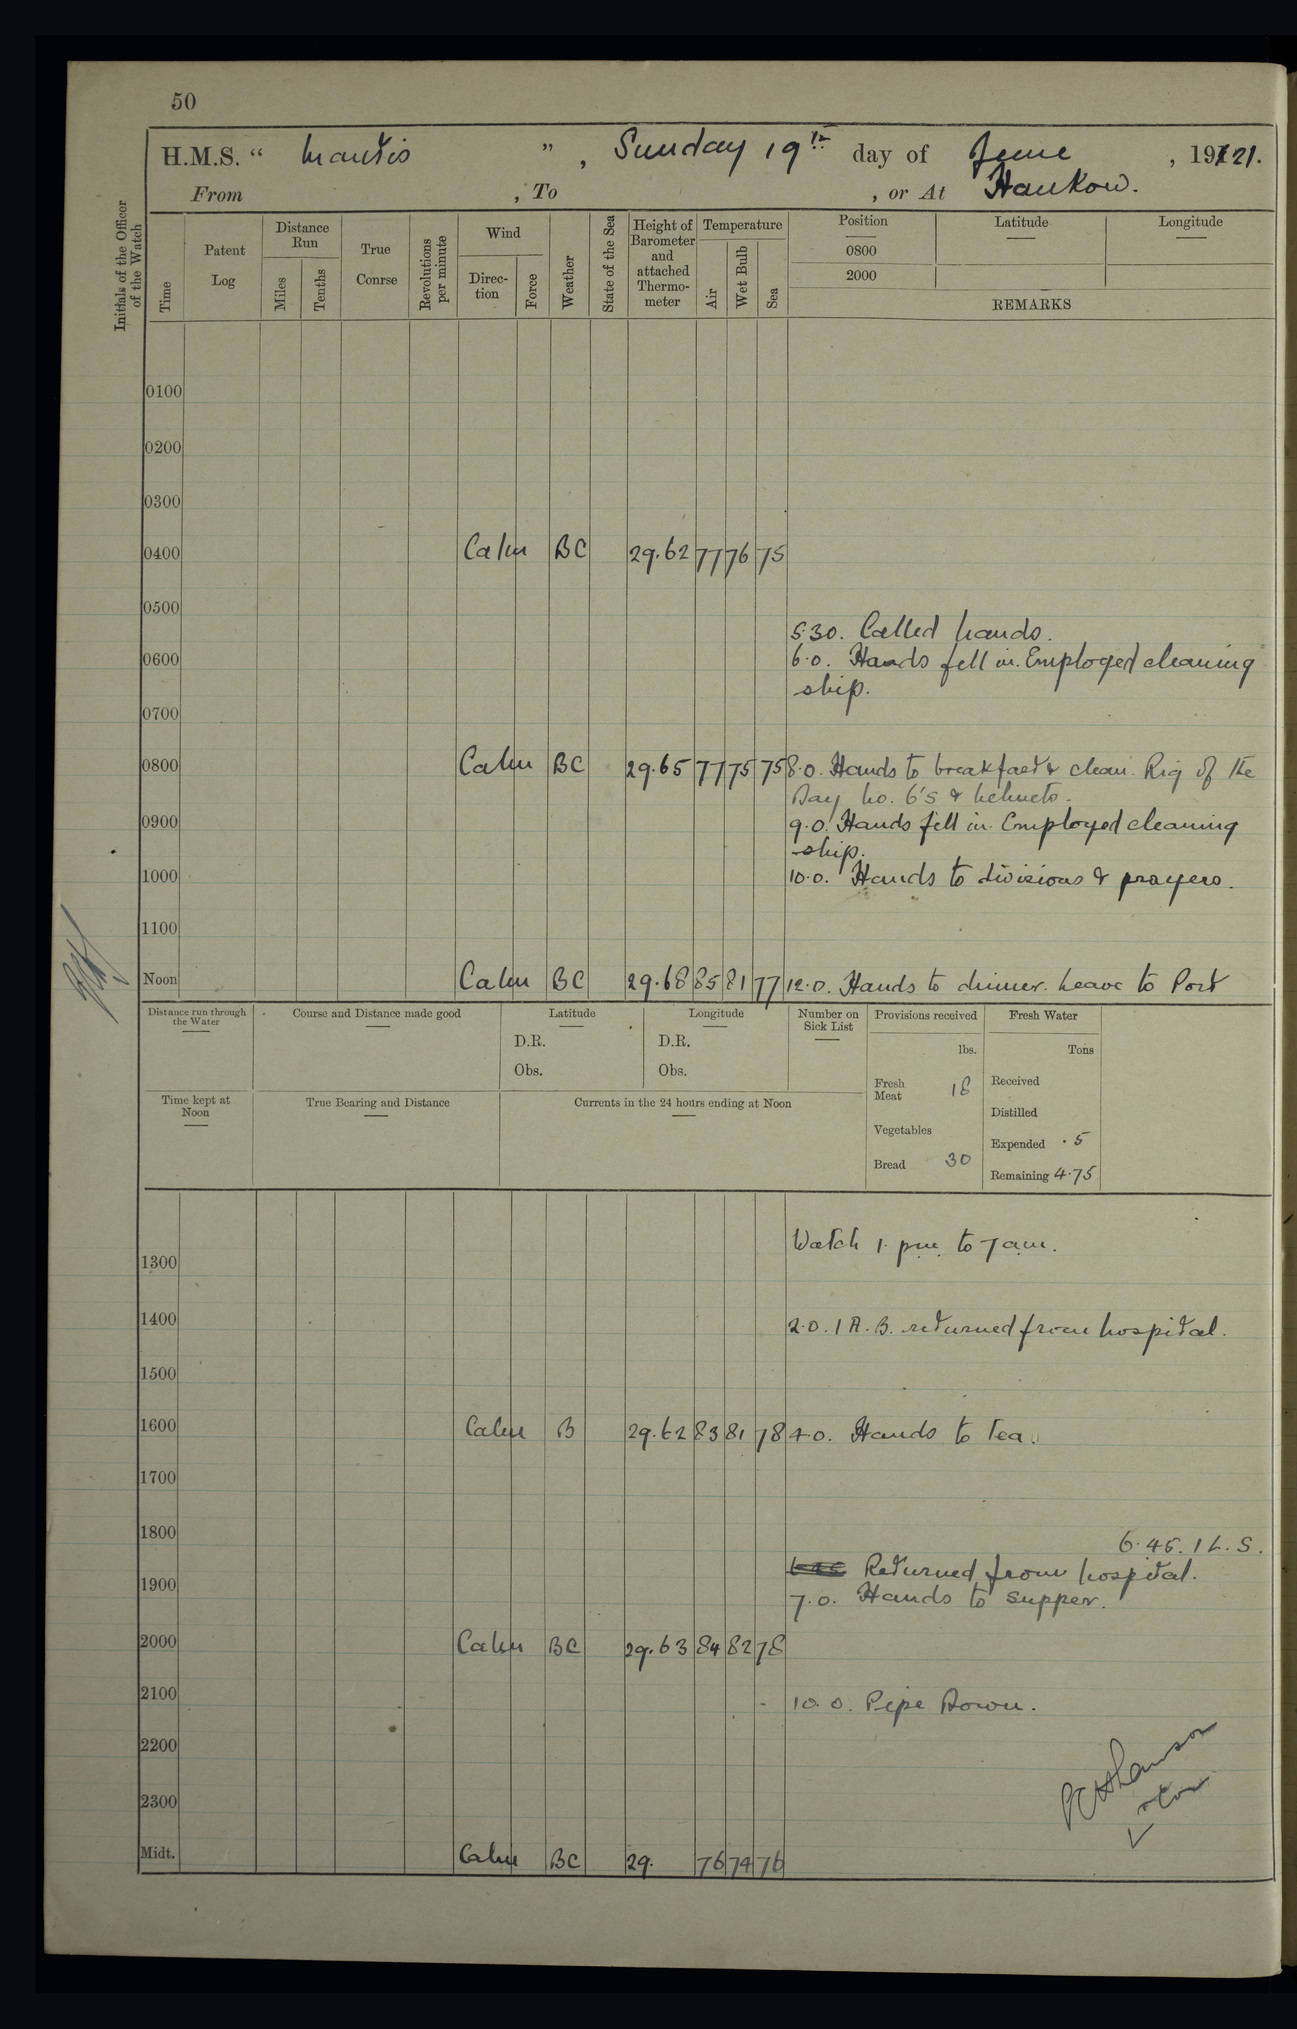 50
H.M.S. “ Mantis ” , Sunday 19th day of June , 1921.
From , To , or At Hankow.
Initials of the Officer of the Watch
Time
Patent Log
Distance Run
Miles
Tenths
True Conrse
Revolutions per minute
Wind
Direc-tion
Force
Weather
State of the Sea
Height of Barometer and attached Thermo-meter
Temperature
Air
Wet Bulb
Sea
Position
Latitude
Longitude
0800
2000
REMARKS
0100
0200
0300
0400 Calm BC 29.62 77 76 75
0500
5.30. Called hands.
0600 6.0. Hands fell in. Employed cleaning
ship.
0700
0800 Calm BC 29.65 77 75 75 8.0. Hands to breakfast & clean. Rig of the
Day No. 6's & helmets.
0900 9.0. Hands fell in. Employed cleaning
ship.
1000 10.0. Hands to divisions & prayers.
1100
Noon Calm BC 29.68 85 81 77 12.0. Hands to dinner. Leave to Port
Distance run through the Water
Course and Distance made good
Latitude
D.R.
Obs.
Longitude
D.R.
Obs.
Number on Sick List
Provisions received
lbs.
Fresh Meat 18
Vegetables
Bread 30
Fresh Water
Tons
Received
Distilled
Expended .5
Remaining 4.75
Time kept at Noon
True Bearing and Distance
Currents in the 24 hours ending at Noon
Watch 1. pm. to 7 am.
1300
1400 2.0. 1 A.B. returned from hospital.
1500
1600 Calm B 29.62 83 81 78 4.0. Hands to tea.
1700
1800 6.45. 1 L.S.
6.45 Returned from hospital.
1900 7.0. Hands to supper.
2000 Calm BC 29.63 84 82 78
2100 10.0. Pipe Down.
2200
2300
Midt. Calm BC 29. 76 74 76